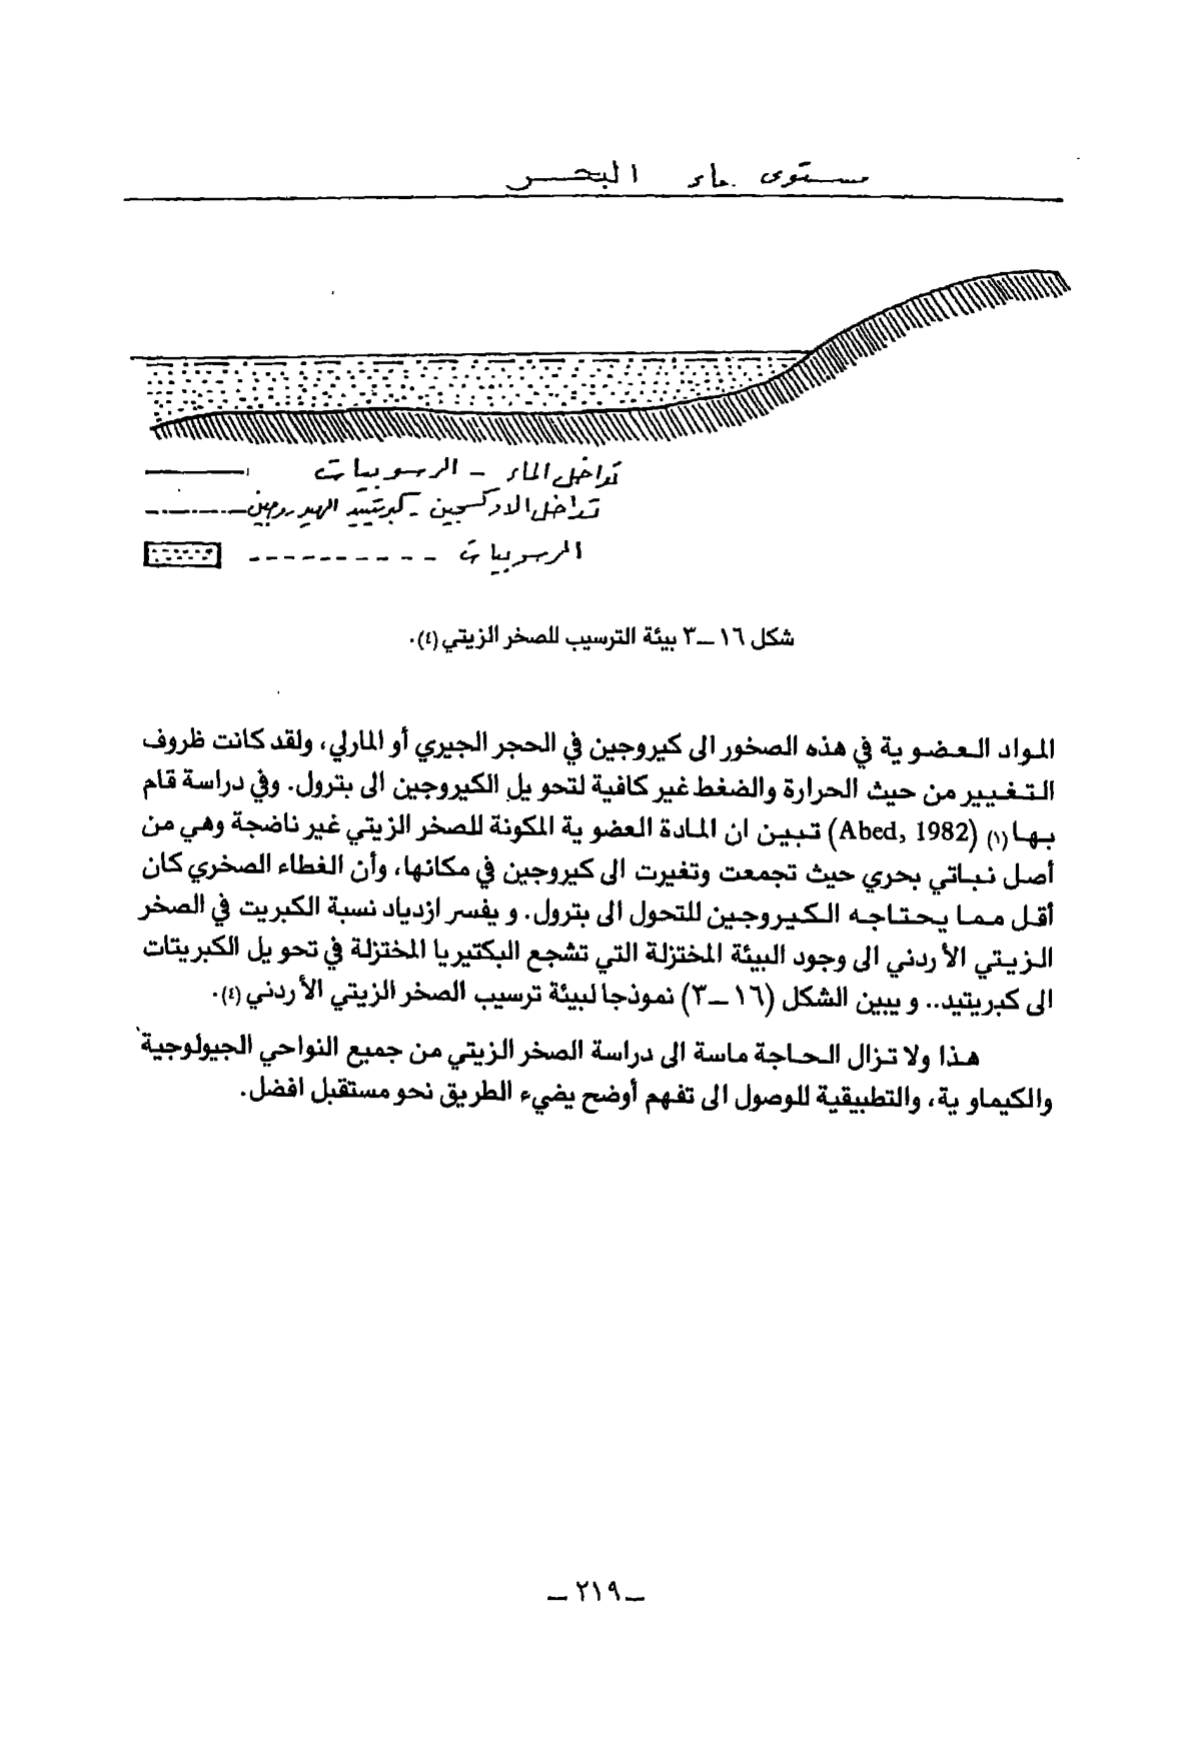 مستوى ماء البحر
تداخل الماء - الرسوبيات
تداخل الاوكسجين - كبريتيد الهيدروجين
الرسوبيات
شكل ١٦ – ٣ بيئة الترسيب للصخر الزيتي (٤).
المواد العضوية في هذه الصخور الى كيروجين في الحجر الجيري أو المارلي، ولقد كانت ظروف
التغيير من حيث الحرارة والضغط غير كافية لتحويل الكيروجين الى بترول. وفي دراسة قام
بها (١) (Abed, 1982) تبين ان المادة العضوية المكونة للصخر الزيتي غير ناضجة وهي من
أصل نباتي بحري حيث تجمعت وتغيرت الى كيروجين في مكانها، وأن الغطاء الصخري كان
أقل مما يحتاجه الكيروجين للتحول الى بترول. ويفسر ازدياد نسبة الكبريت في الصخر
الزيتي الأردني الى وجود البيئة المختزلة التي تشجع البكتيريا المختزلة في تحويل الكبريتات
الى كبريتيد.. ويبين الشكل (١٦ – ٣) نموذجا لبيئة ترسيب الصخر الزيتي الأردني (٤).
هذا ولا تزال الحاجة ماسة الى دراسة الصخر الزيتي من جميع النواحي الجيولوجية
والكيماوية، والتطبيقية للوصول الى تفهم أوضح يضيء الطريق نحو مستقبل افضل.
– ٢١٩ –